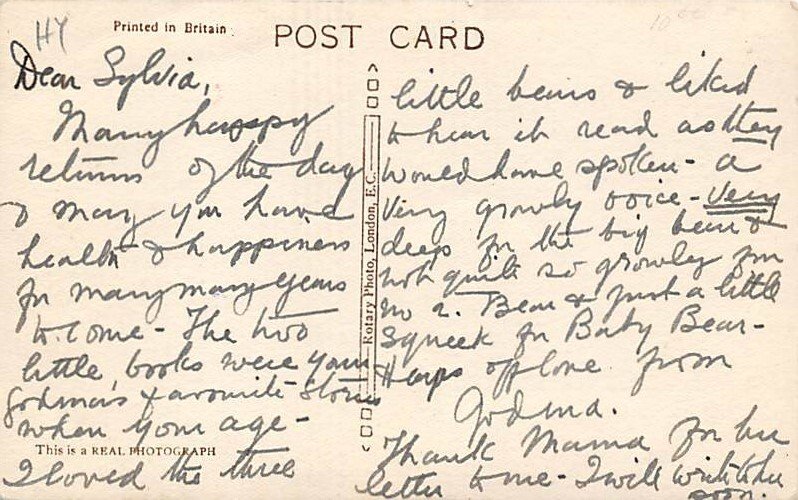 HY
Printed in Britain
POST CARD
Dear Sylvia,
Many happy
returns of the day
& may you have
health & happiness
for many many years
to come - The two
little books were your
Godma's favourite stories
when your age -
This is a REAL PHOTOGRAPH
I loved the three
Rotary Photo, London, E.C.
little bears & liked
to hear it read as they
would have spoken - a
very growly voice - very
deep for the big bear &
not quite so growly for
no 2. Bear & just a little
Squeek for Baby Bear -
Heaps of love from
Godma.
Thank Mama for her
letter to me - I will write to her
soon